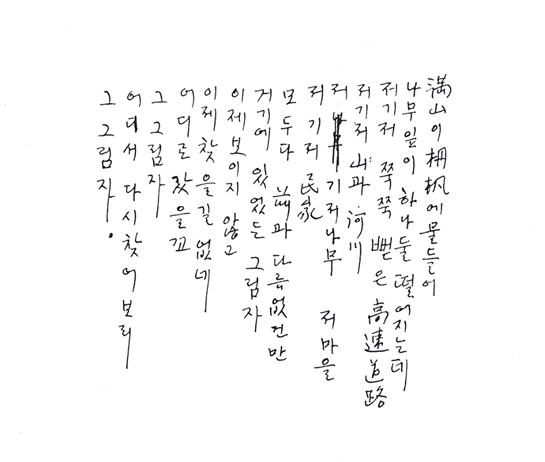 滿山이 丹楓에 물들어
나무잎이 하나둘 떨어지는데
저기저 쭉쭉 뻗은 高速道路
저기저 山과 河川
저 기저나무 저마을
저기저 民家
모두다 前과 다름없건만
거기에 있었든 그림자
이제 보이지 않고
이제 찾을길 없네
어디로 갔을꼬
그 그림자
어디서 다시찾어보리
그 그림자.